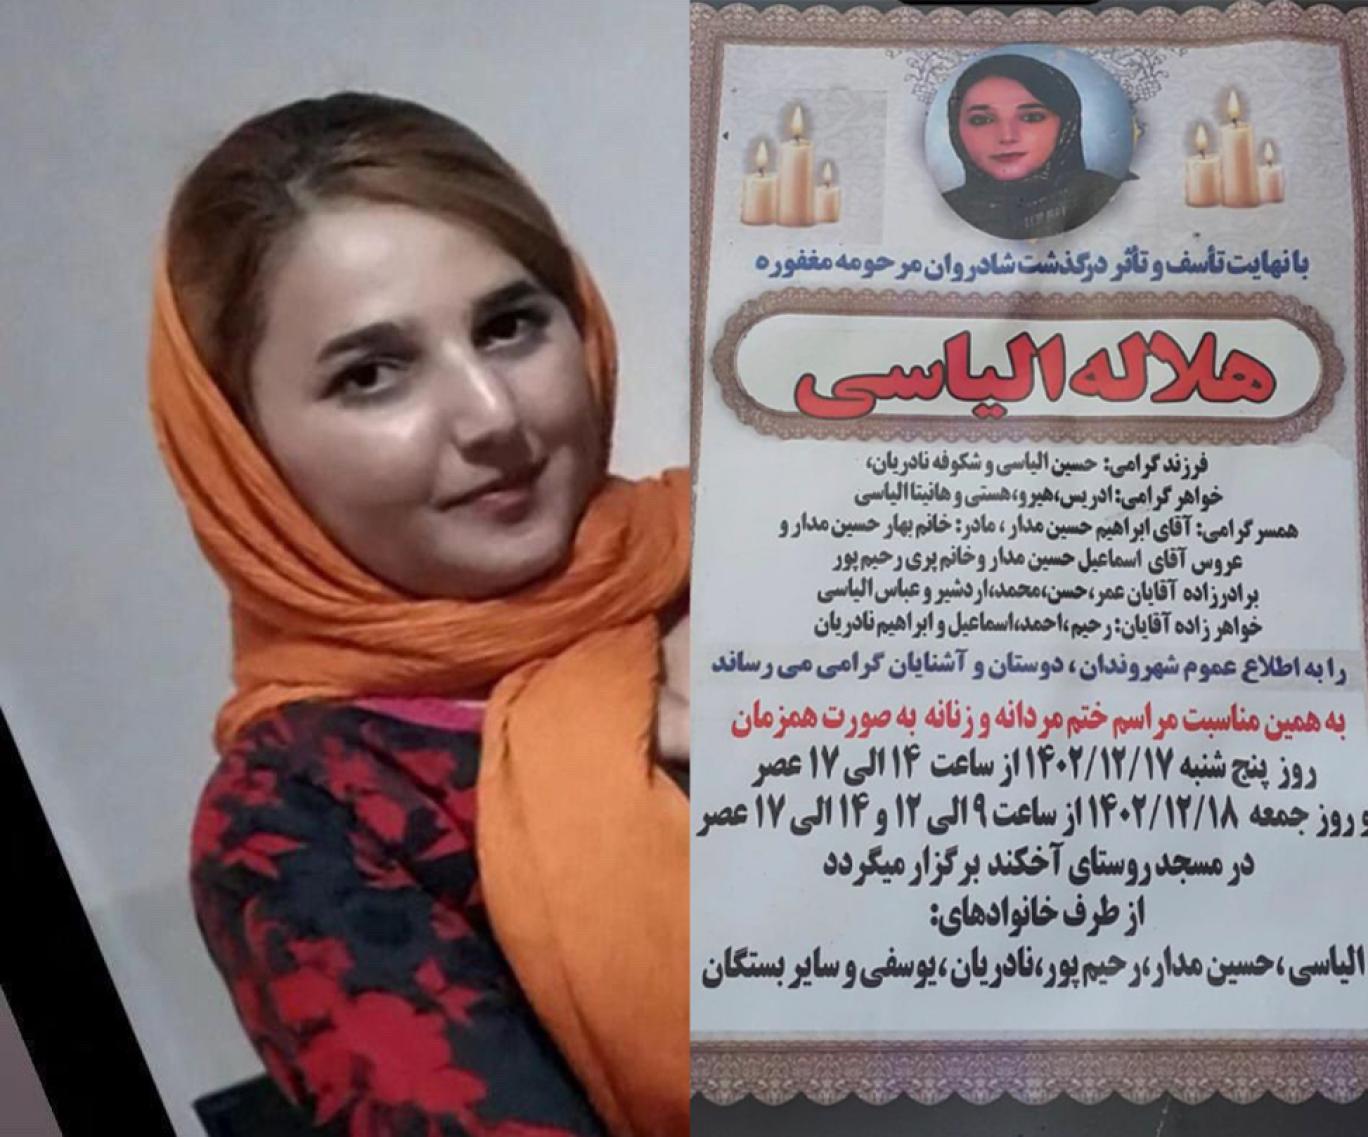 با نهایت تأسف و تأثر درگذشت شادروان مرحومه مغفوره
هلاله الیاسی
فرزند گرامی: حسین الیاسی و شکوفه نادریان،
خواهر گرامی: ادریس،هیرو،هستی و هانیتا الیاسی
همسر گرامی: آقای ابراهیم حسین مدار، مادر: خانم بهار حسین مدار و
عروس آقای اسماعیل حسین مدار و خانم پری رحیم پور
برادرزاده آقایان عمر،حسن،محمد،اردشیر و عباس الیاسی
خواهر زاده آقایان: رحیم،احمد،اسماعیل و ابراهیم نادریان
را به اطلاع عموم شهروندان، دوستان و آشنایان گرامی می رساند
به همین مناسبت مراسم ختم مردانه و زنانه به صورت همزمان
روز پنج شنبه ۱۴۰۲/۱۲/۱۷ از ساعت ۱۴ الی ۱۷ عصر
و روز جمعه ۱۴۰۲/۱۲/۱۸ از ساعت ۹ الی ۱۲ و ۱۴ الی ۱۷ عصر
در مسجد روستای آخکند برگزار میگردد
از طرف خانوادهای:
الیاسی، حسین مدار،رحیم پور،نادریان،یوسفی و سایر بستگان